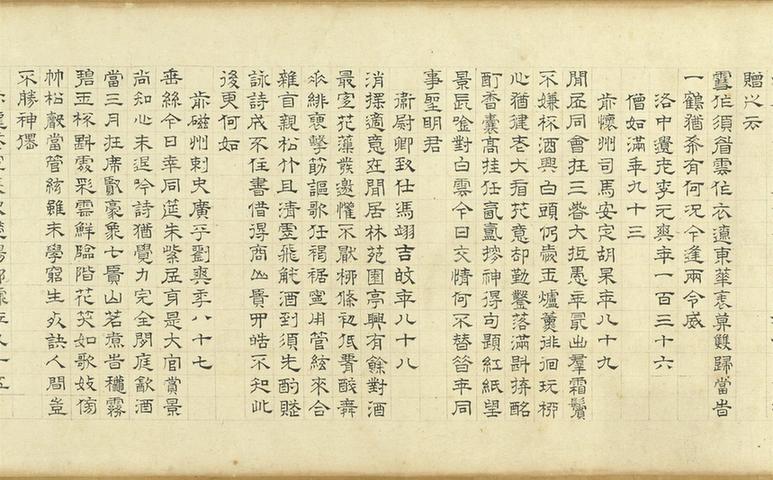 贈之云
雪作須眉雲作衣遼東華表莫雙歸當旹
一鶴猶希有何況今逢兩令威
洛中遺老李元爽年一百三十六
僧如滿年九十三
前懷州司馬安定胡杲年八十九
閒居同會在三春大抵愚年最出羣霜鬢
不嫌杯酒興白頭仍愛玉爐薰徘徊玩柳
心猶健老大看花意却勤鑿落滿斟拚酩
酊香囊高挂任氤氳搜神得句題紅紙望
景長吟對白雲今日交情何不替齊年同
事聖明君
衞尉卿致仕馮翊吉旼年八十八
消搖適意在閒居林苑園亭興有餘對酒
最宜花藻發邀懽不厭柳條初低臂醆舞
來緋褎擊筯謳歌任褐裾寧用管絃來合
雜自親松竹且清虛飛觥酒到須先酌賦
詠詩成不住書借得商山賢四皓不知此
後更何如
前磁州刺史廣平劉爽年八十七
垂絲今日幸同筵朱紫居身是大官賞景
尚知心未退吟詩猶覺力完全閒庭飲酒
當三月在席賢豪象七賢山茗煮旹穐霧
碧玉杯斟處彩雲鮮臨階花笑如歌妓傍
竹松聲當管絃雖未學窮生死訣人間豈
不勝神僊